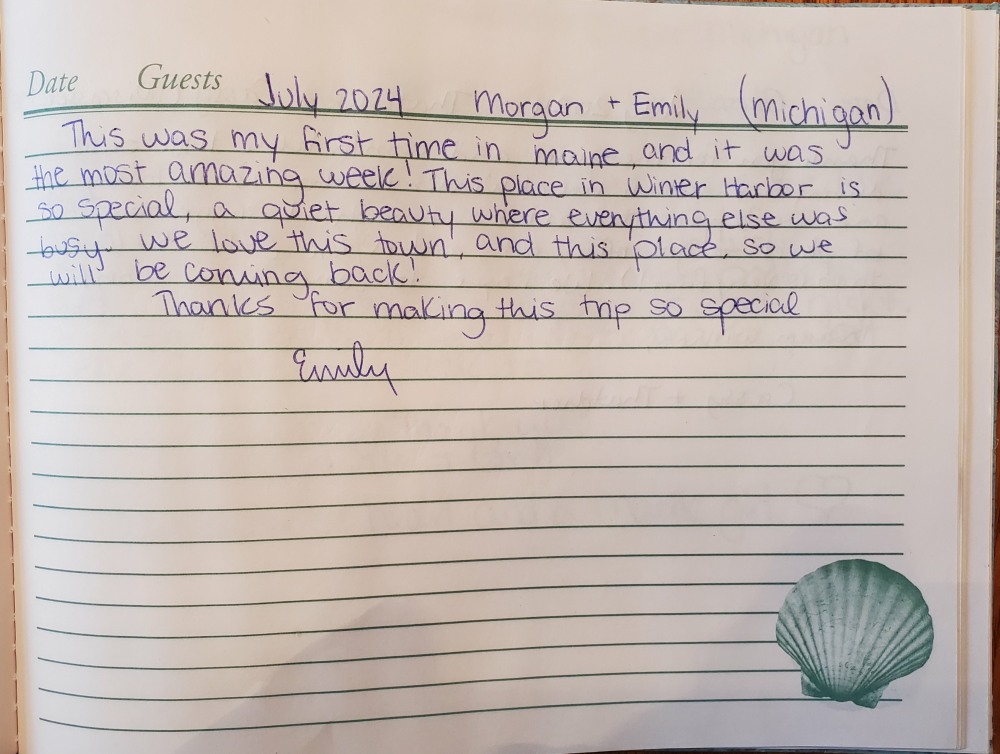 Date Guests July 2024 Morgan + Emily (michigan)
This was my first time in maine, and it was
the most amazing week! This place in Winter Harbor is
so special, a quiet beauty where everything else was
busy. we love this town, and this place, so we
will be coming back!
Thanks for making this trip so special
Emily